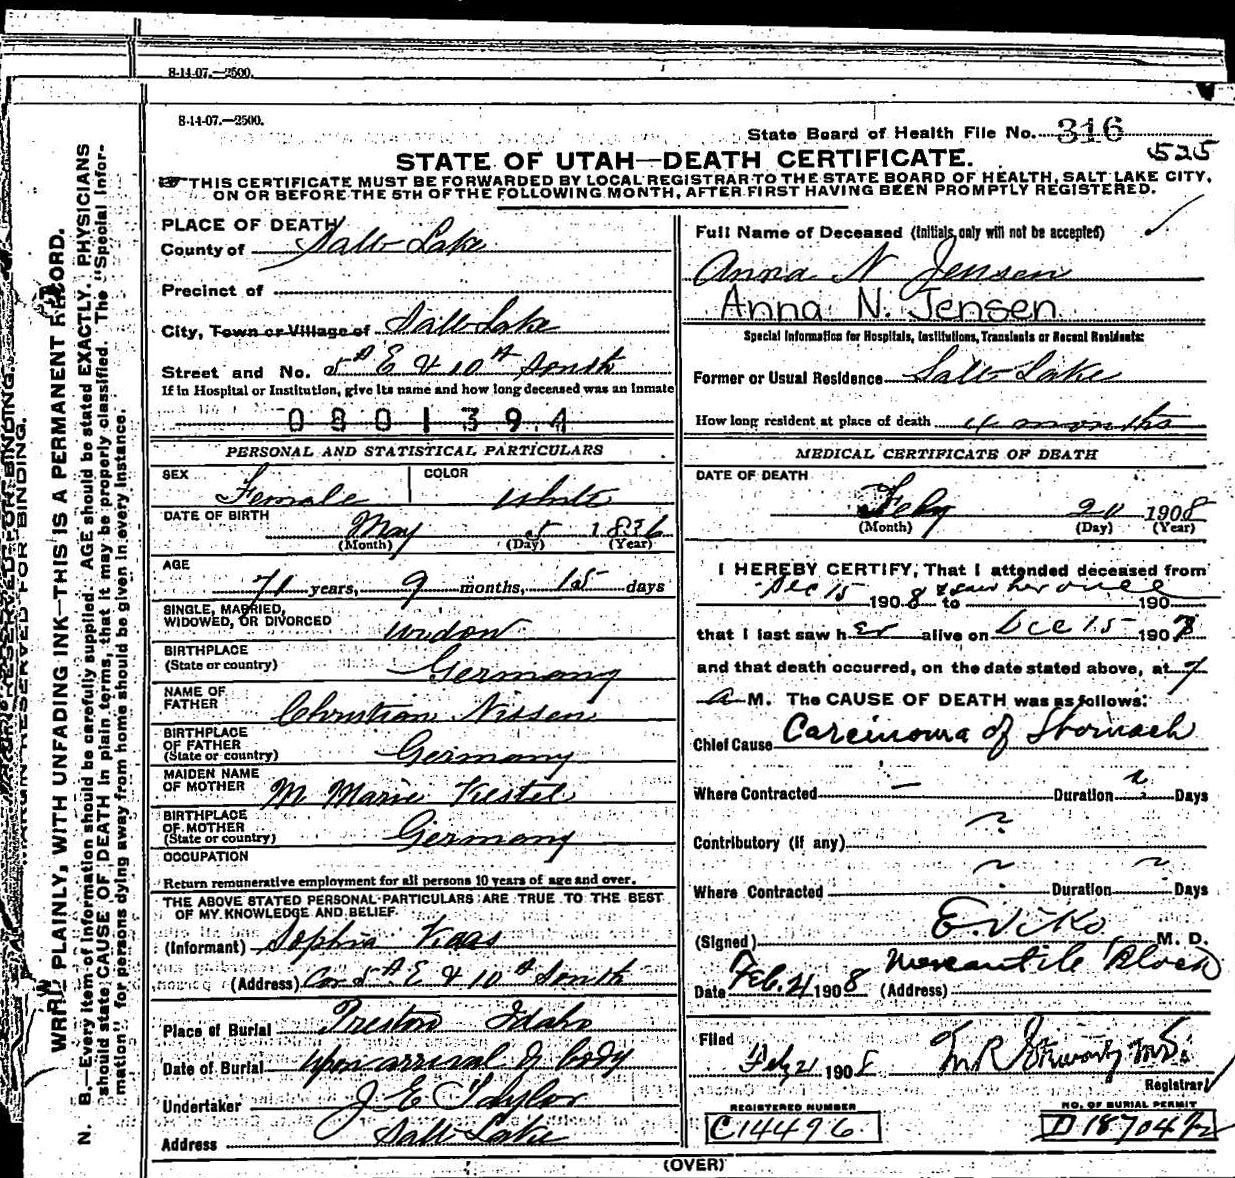 8-14-07.—2500.
8-14-07.—2500.
State Board of Health File No. 316
525
STATE OF UTAH—DEATH CERTIFICATE.
☞ THIS CERTIFICATE MUST BE FORWARDED BY LOCAL REGISTRAR TO THE STATE BOARD OF HEALTH, SALT LAKE CITY,
ON OR BEFORE THE 5TH OF THE FOLLOWING MONTH, AFTER FIRST HAVING BEEN PROMPTLY REGISTERED.
PLACE OF DEATH
County of Salt Lake
Precinct of
City, Town or Village of Salt Lake
Street and No. 5th E & 10th South
If in Hospital or Institution, give its name and how long deceased was an inmate
0801394
PERSONAL AND STATISTICAL PARTICULARS
SEX Female COLOR White
DATE OF BIRTH May 5 1836
(Month) (Day) (Year)
AGE
71 years, 9 months, 15 days
SINGLE, MARRIED,
WIDOWED, OR DIVORCED widow
BIRTHPLACE
(State or country) Germany
NAME OF
FATHER Christian Nissen
BIRTHPLACE
OF FATHER
(State or country) Germany
MAIDEN NAME
OF MOTHER M Marie
BIRTHPLACE
OF MOTHER
(State or country) Germany
OCCUPATION
Return remunerative employment for all persons 10 years of age and over.
THE ABOVE STATED PERSONAL PARTICULARS ARE TRUE TO THE BEST
OF MY KNOWLEDGE AND BELIEF.
(Informant) Sophia
(Address) Cor 5th E & 10th South
Place of Burial Preston Idaho
Date of Burial upon arrival of body
Undertaker J E Taylor
Address Salt Lake
Full Name of Deceased (Initials only will not be accepted)
Anna N Jensen
Anna N. Jensen
Special Information for Hospitals, Institutions, Transients or Recent Residents:
Former or Usual Residence Salt Lake
How long resident at place of death 4 months
MEDICAL CERTIFICATE OF DEATH
DATE OF DEATH
Feby 20 1908
(Month) (Day) (Year)
I HEREBY CERTIFY, That I attended deceased from
Dec 15 1908 & saw her once to 190
that I last saw her alive on Dec 15 190
and that death occurred, on the date stated above, at 7
a M. The CAUSE OF DEATH was as follows:
Chief Cause Carcinoma of Stomach
Where Contracted — Duration ? Days
Contributory (if any)
Where Contracted Duration Days
(Signed) E. Viko M. D.
Date Feb. 21 1908 (Address) Mercantile Block
Filed
Feby 21 1908
Registrar
REGISTERED NUMBER
C14496
NO. OF BURIAL PERMIT
D 18704
(OVER)
MARGIN RESERVED FOR BINDING.
WRITE PLAINLY, WITH UNFADING INK—THIS IS A PERMANENT RECORD.
N. B.—Every item of information should be carefully supplied. AGE should be stated EXACTLY. PHYSICIANS
should state CAUSE OF DEATH in plain terms, that it may be properly classified. The "Special Infor-
mation" for persons dying away from home should be given in every instance.